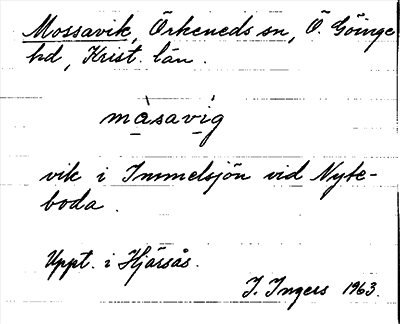 Mossavik, Örkeneds sn, Ö. Göinge
hd, Krist. län.
màsavíg
vik i Immelsjön vid Nyte-
boda.
Uppt. i Hjärsås.
I. Ingers 1963.